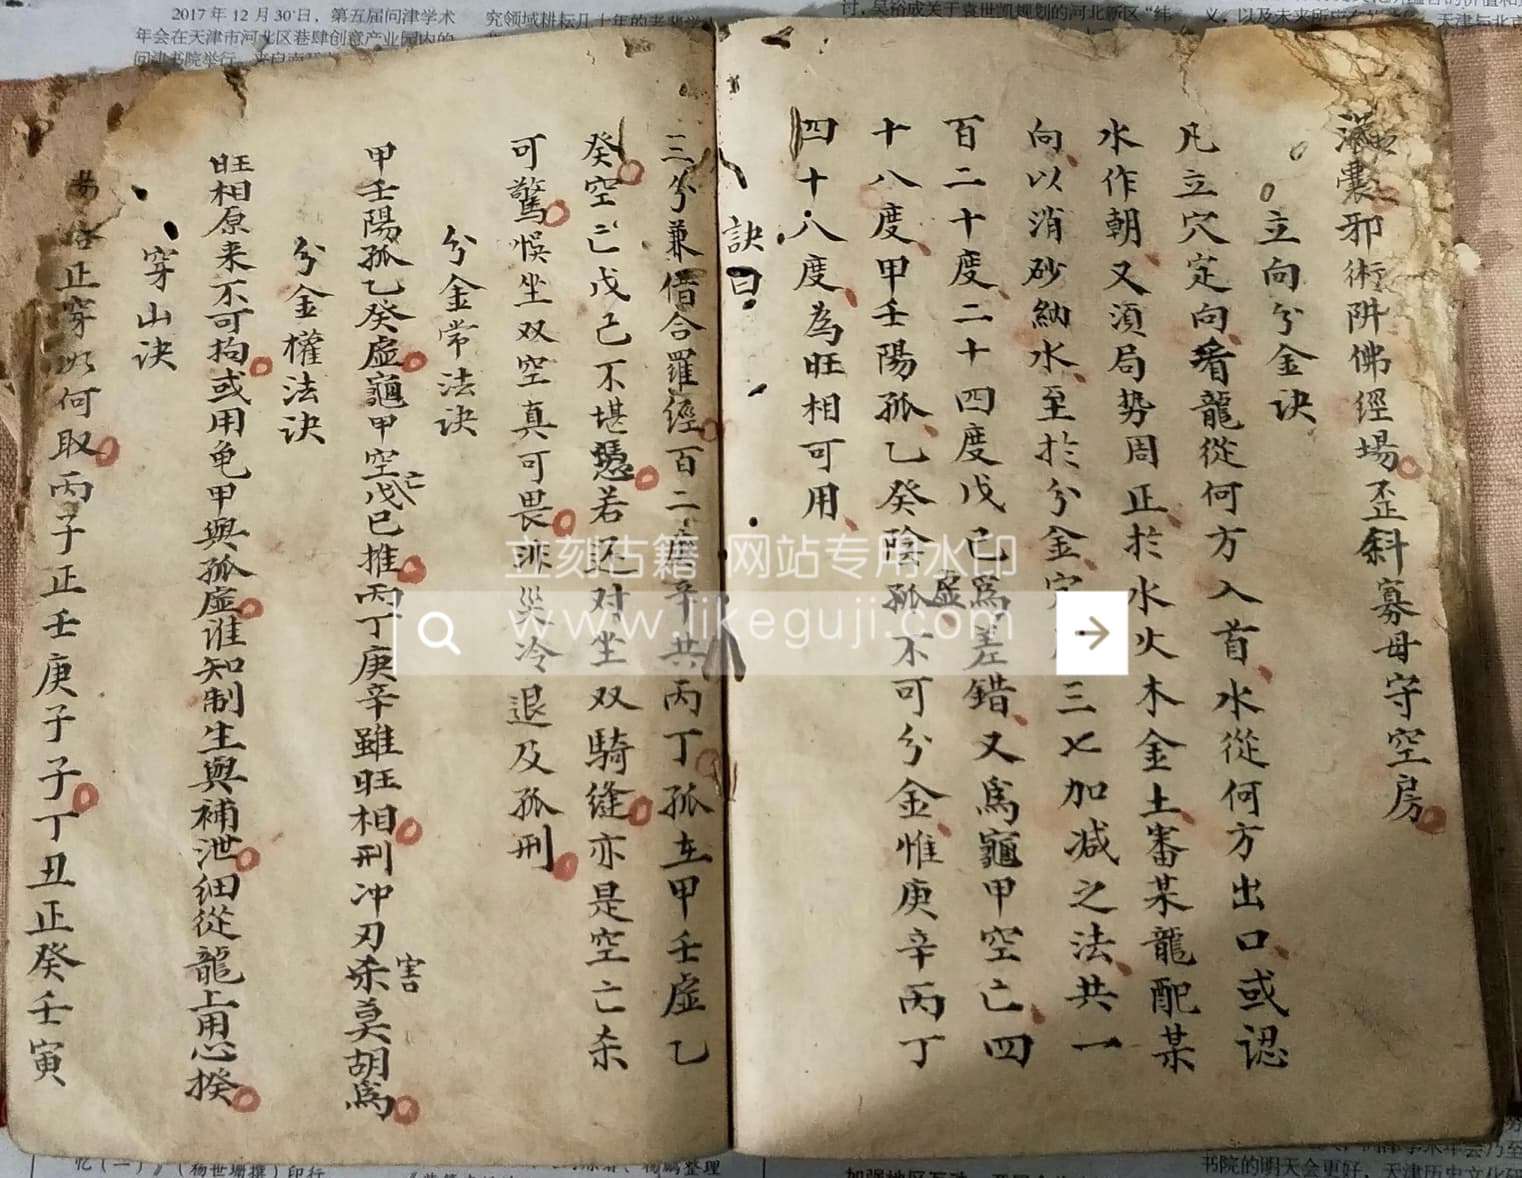 邪術阱佛經場歪斜寡母守空房
立向分金诀
凡立穴定向看龍從何方入首水從何方出口或认
水作朝又須局势周正於水火木金土審某龍配某
向以消砂納水至於分金定三七加减之法共一
百二十度二十四度戊己為差錯又為龜甲空亡四
十八度甲壬陽孤乙癸陰孤虛不可分金惟庚辛丙丁
四十八度為旺相可用
訣曰
三分兼借合羅經百二庚辛共丙丁孤在甲壬虛乙
癸空亡戊己不堪憑若还对坐双騎縫亦是空亡杀
可驚悮坐双空真可畏災冷退及孤刑
分金常法诀
甲壬陽孤乙癸虛龜甲空亡戊己推丙丁庚辛雖旺相刑冲刃杀害莫胡為
分金權法诀
旺相原来不可拘或用龟甲與孤虛谁知制生與補泄细從龍上用心揆
穿山诀
正穿以何取丙子正壬庚子子丁丑正癸壬寅
立刻古籍 网站专用水印
www.likeguji.com
2017年12月30日，第五届问津学术
年会在天津市河北区巷肆创意产业园内的
问津书院举行
究领域耕耘几十年的老
讨，吴裕成关于袁世凯规划的河北新区“纬
忆（一）》（杨世珊撰）印行
杨鹏整理
书院的明天会更好，天津历史文化研